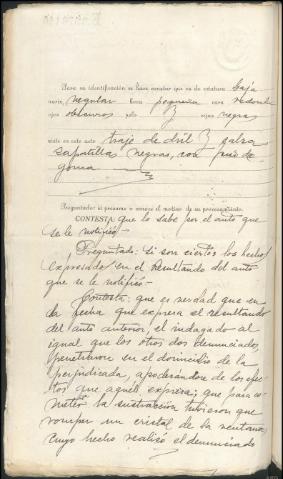 Para su identificación se hace constar que es de estatura baja
nariz regular boca pequeña cara redonda
ojos obscuros pelo cejas negras
viste en este acto traje de dril y calza
zapatillas negras, con piso de
goma
Preguntado si presume o conoce el motivo de su procesamiento.
CONTESTA: que lo sabe por el auto que
se le notificó-
Preguntado: Si son ciertos los hechos
expresados en el Resultando del auto
que se le notificó-
Contesta: que es verdad que en
la fecha que expresa el resultando
del auto anterior, el indagado al
igual que los otros dos denunciados,
penetraron en el domicilio de la
perjudicada, apoderándose de los efec-
tos que aquel expresa; que para co-
meter la sustracción tuvieron que
romper un cristal de la ventana
cuyo hecho realizó el denunciado